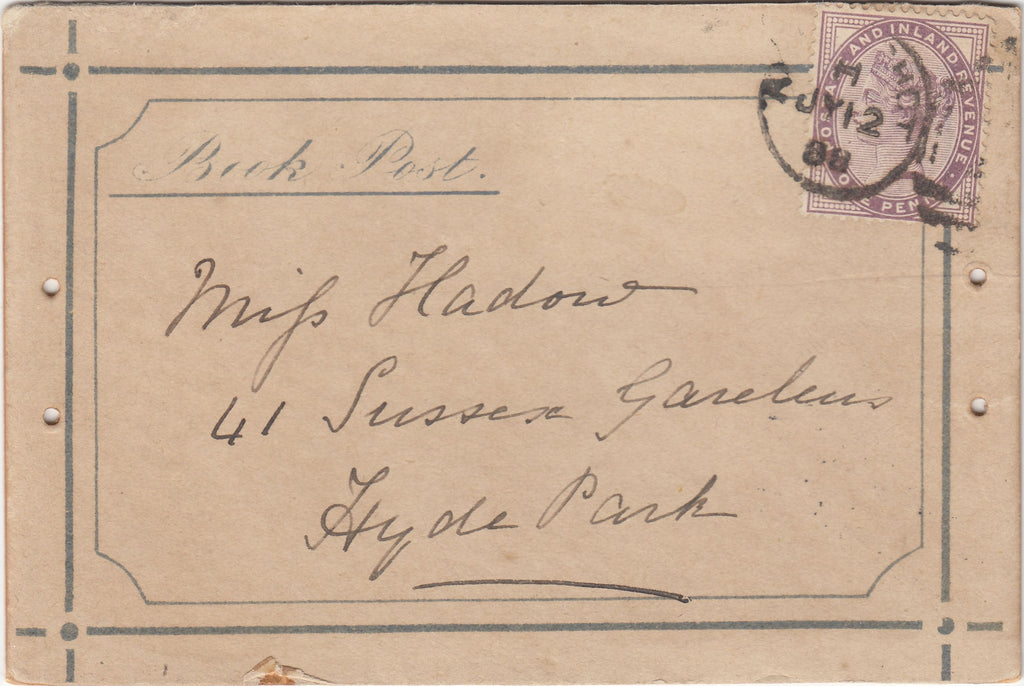 POSTAGE AND INLAND REVENUE
ONE PENNY
JY 12
88
Book Post.
Miss Hadow
41 Sussex Gardens
Hyde Park